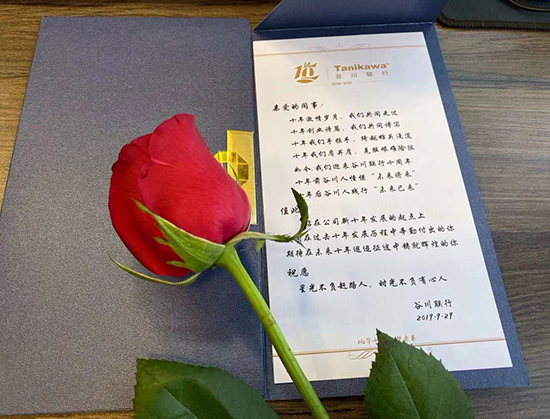 Tanikawa
谷川联行
亲爱的同事：
十年激情岁月，我们共同走过
十年创业诗篇，我们共同谱写
十年我们手拉手，跨越雄关漫道
十年我们肩并肩，克服艰难险阻
如今，我们迎来谷川联行十周年
十年前谷川人憧憬“未来将来”
年后谷川人践行“未来已来”
值此
在公司新十年发展的起点上
在过去十年发展历程中辛勤付出的你
期待在未来十年逐征途中铸就辉煌的你
祝愿
星光不负赶路人，时光不负有心人
谷川联行
2019.9.29